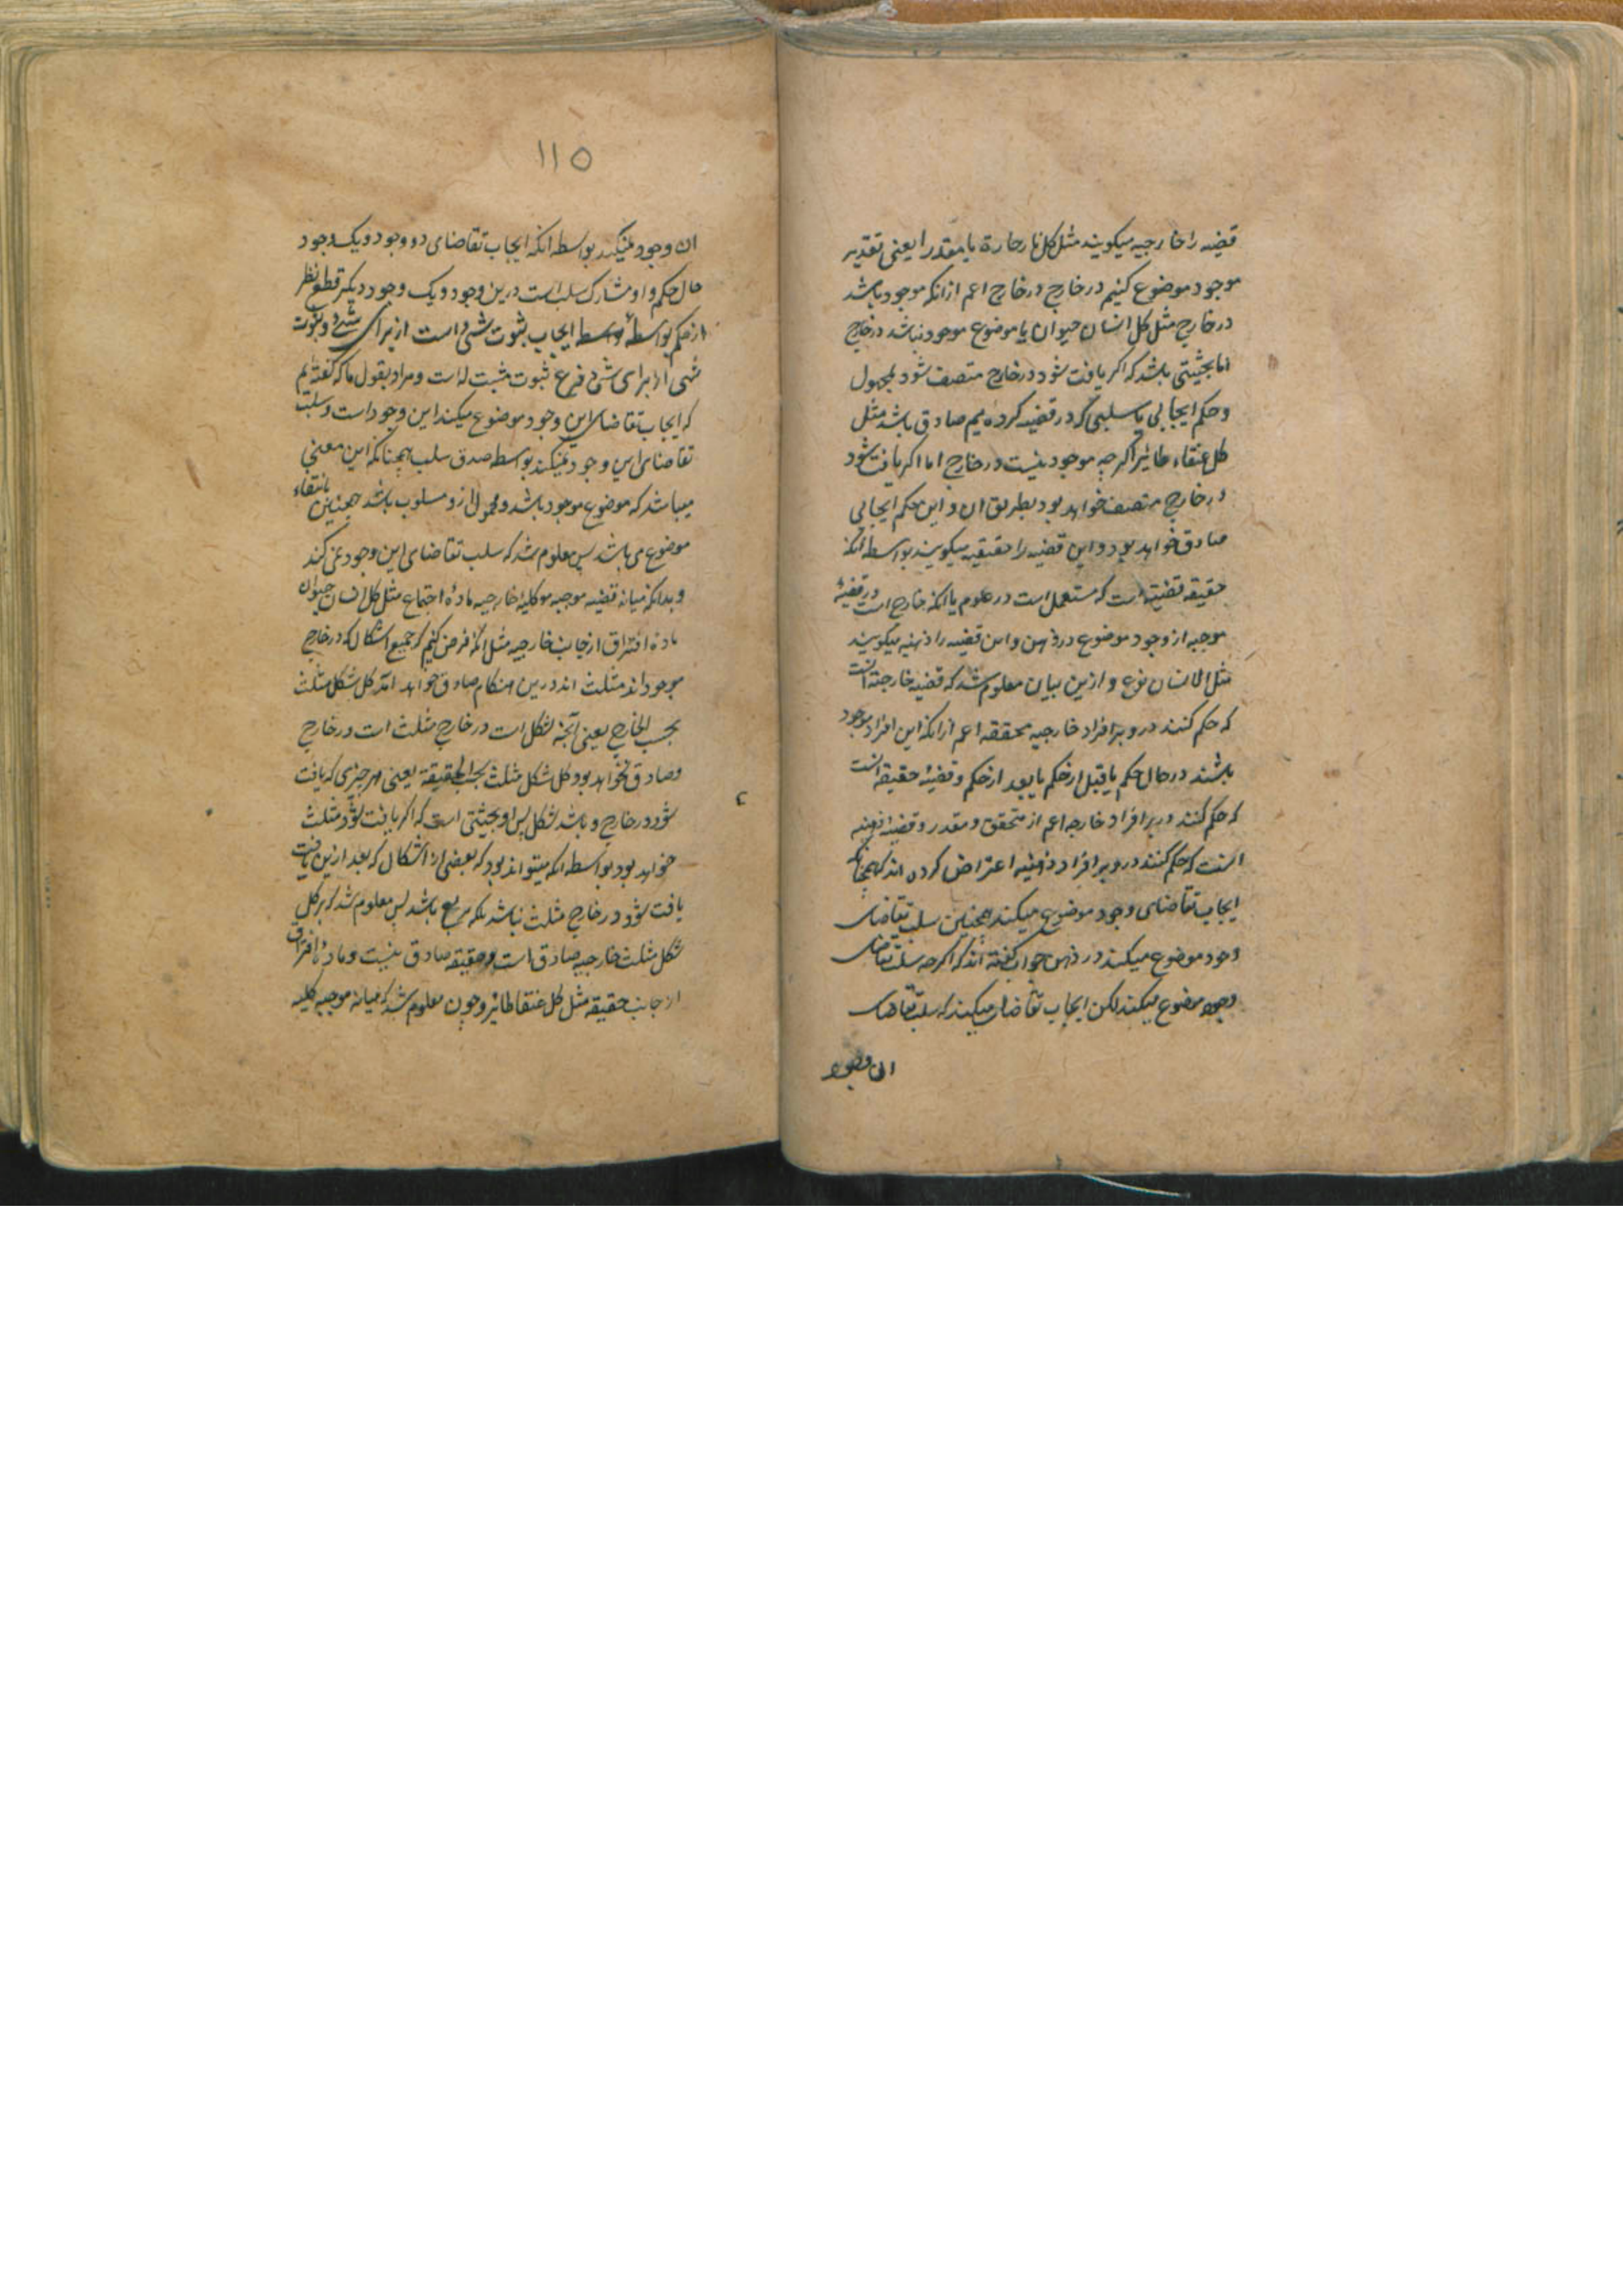 قضیه را خارجیه میکویند مثل کل نار حارة یا مقدرا یعنی تقدیر
موجود موضوع کنیم در خارج در خارج اعم ازانکه موجود باشد
در خارج مثل کل انسان حیوان یا موضوع موجود نباشد در خارج
اما بحیثیتی باشد که اکر یافت شود در خارج متصف شود بمحمول
و حکم ایجابی یا سلبی که در قضیه کرده یم صادق باشد مثل
کل عنقاء طائر اکرچه موجود نیست در خارج اما اکر یافت شود
در خارج متصف خواهد بود بطریق ان و این حکم ایجابی
صادق خواهد بود و این قضیه را حقیقیه میکویند بواسطه انکه
حقیقه قضیه است که مستعمل است در علوم یا انکه خارج است در قضیهٔ
موجبه از وجود موضوع در ذهن و این قضیه را ذهنیه میکویند
مثل الانسان نوع و ازین بیان معلوم شد که قضیه خارجیه انست
که حکم کنند درو بر افراد خارجیه محققه اعم ازانکه این افراد موجود
باشند در حال حکم یا قبل از حکم یا بعد از حکم و قضیهٔ حقیقه انست
که حکم کنند در بر افراد خارجه اعم از متحقق و مقدر و قضیهٔ ذهنیه
انست که حکم کنند درو بر افراد ذهنیه اعتراض کرده اند که همچنانکه
ایجاب تقاضای وجود موضوع میکند همچنین سلب تقاضای
وجود موضوع میکند در ذهن جواب کفته اند که اکرچه سلب تقاضای
وجود موضوع میکند لکن ایجاب تقاضای میکند که سلب تقاضای
ان وجود
۱۱۵
ان وجود نمیکند بواسطه انکه ایجاب تقاضای دو وجود و یک وجود
حال حکم و او مشارک سلب است درین وجود و یک وجود دیکر قطع نظر
از حکم بواسطهٔ ایجاب ثبوت شیٔ است از برای شیٔ و ثبوت
شیٔ از برای شیٔ فرع ثبوت مثبت له است و مراد بقول ما که کفته یم
که ایجاب تقاضای این وجود موضوع میکند این وجود است و سلب
تقاضای این وجود نمیکند بواسطه صدق سلب همچنانکه این معنی
میباشد که موضوع موجود باشد و محمول ازو مسلوب باشد همچنین بانتفاء
موضوع می باشد پس معلوم شد که سلب تقاضای این وجود نمی کند
و بدانکه میانه قضیه موجبه کلیهٔ خارجیه مادهٔ اجتماع مثل کل انسان حیوان
مادهٔ افتراق از جانب خارجیه مثل انکه فرض کنیم که جمیع اشکال که در خارج
موجود اند مثلث اند درین هنکام صادق خواهد آمد کل شکل مثلث
بحسب الخارج یعنی آنچه شکل است در خارج مثلث است در خارج
و صادق نخواهد بود کل شکل مثلث بحسب الحقیقة یعنی هر چیزی که یافت
شود در خارج و باشد شکل پس او بحیثیتی است که اکر یافت شود مثلث
خواهد بود بواسطه انکه میتواند بود که بعضی از اشکال که بعد ازین یافت
یافت شود در خارج مثلث نباشد بلکه مربع باشد پس معلوم شد که بر کل
شکل مثلث خارجیه صادق است و حقیقه صادق نیست و مادهٔ افتراق
از جانب حقیقه مثل کل عنقا طائر و چون معلوم شد که میانه موجبه کلیه